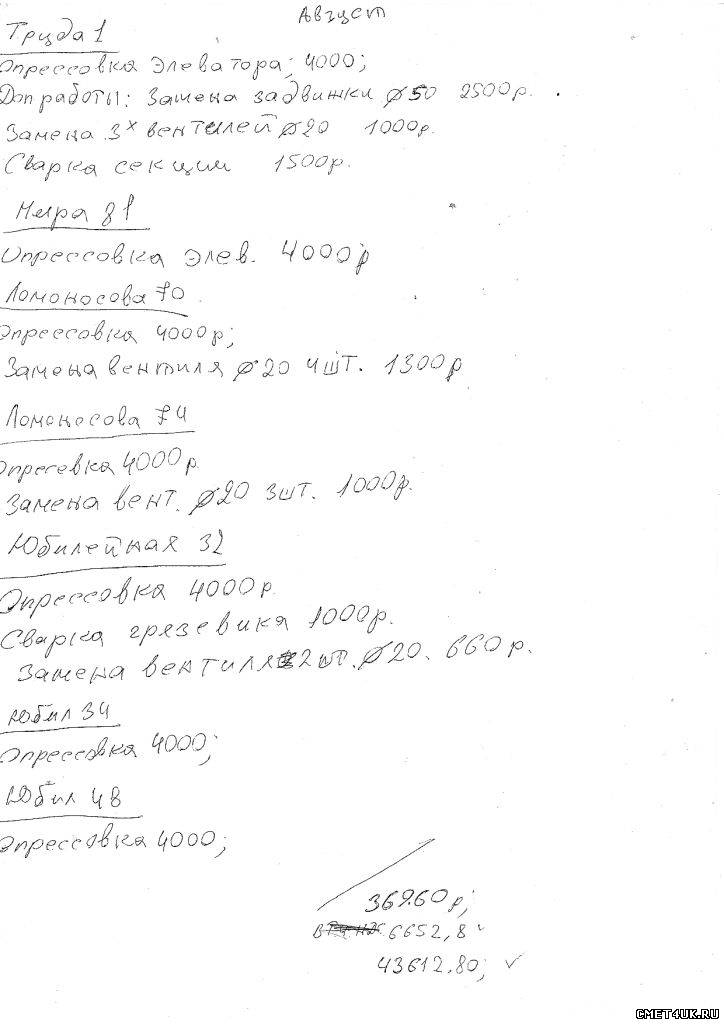 Август
Труда 1
Опрессовка Элеватора; 4000;
Доп работы: Замена задвижки ø50 2500р.
Замена 3х вентилей ø20 1000р.
Сварка секции 1500р.
Мира 81
Опрессовка элев. 4000р
Ломоносова 70
Опрессовка 4000р;
Замена вентиля ø20 4шт. 1300р
Ломоносова 74
4000р
Замена вент. ø20 3шт. 1000р.
Юбилейная 32
Опрессовка 4000р.
Сварка грязевика 1000р.
Замена вентиля 2шт. ø20. 660р.
Юбил 34
Опрессовка 4000;
Юбил 48
Опрессовка 4000;
36960р;
6652,8
43612.80;
CMET4UK.RU